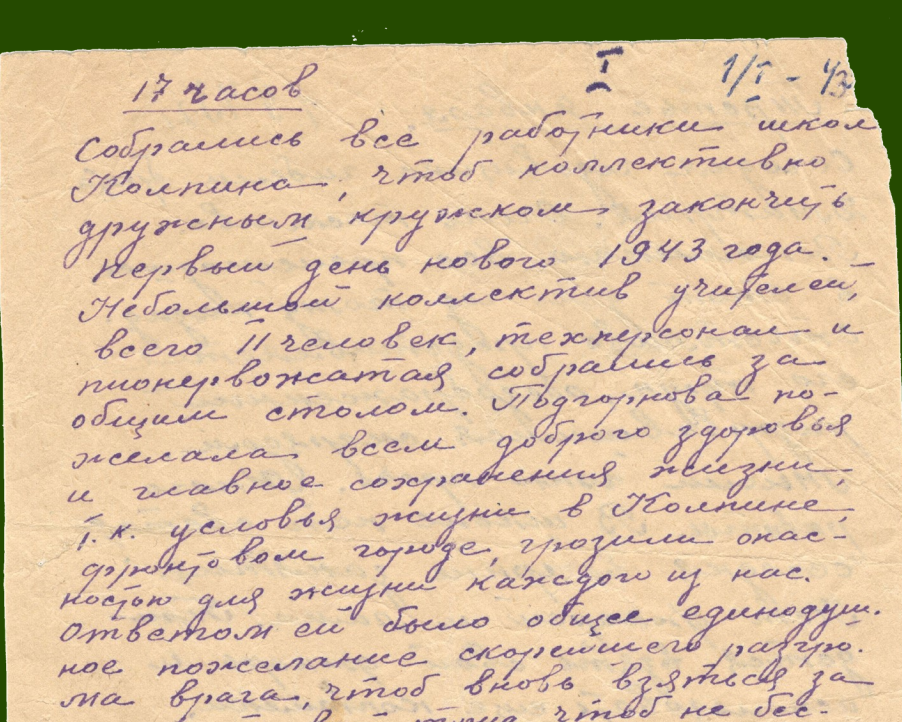 17 часов I 1/I - 43
Собрались все работники школ
Колпина, чтоб коллективно
дружным кружком закончить
первый день нового 1943 года.
Небольшой коллектив учителей,
всего 11 человек, техперсонал и
пионервожатая собрались за
общим столом. Подгорнова по-
желала всем доброго здоровья
и главное сохранения жизни,
т.к. условья жизни в Колпине,
фронтовом городе, грозили опас-
ностью для жизни каждого из нас.
Ответом ей было общее единодуш.
ное пожелание скорейшего разгро.
ма врага, чтоб вновь взяться за
труд, чтоб не бес-